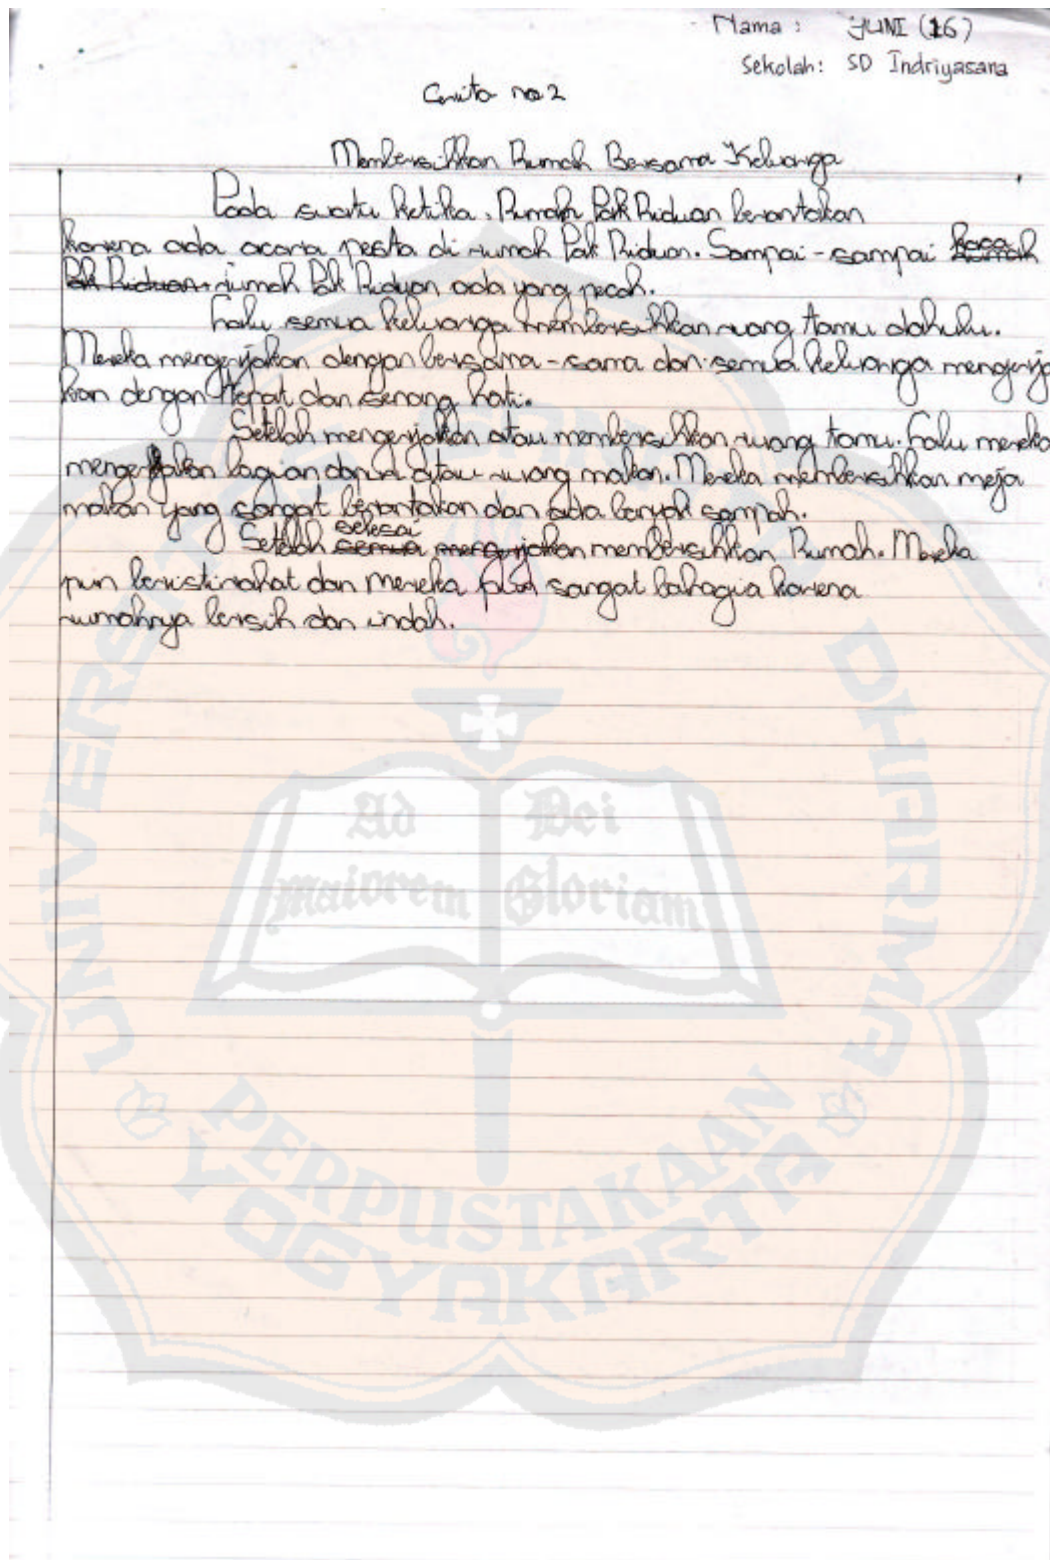 Nama : JUNI (16)
Sekolah: SD Indriyasana
Cerita no 2
Membersihkan Rumah Bersama Keluarga
Pada suatu ketika, Rumah Pak Riduan berantakan
karena ada acara pesta di rumah Pak Riduan. Sampai-sampai kaca rumah
Pak Riduan. rumah Pak Riduan ada yang pecah.
Lalu semua keluarga membersihkan ruang tamu dahulu.
Mereka mengerjakan dengan bersama-sama dan semua keluarga mengerja
kan dengan tepat dan senang hati.
Setelah mengerjakan atau membersihkan ruang tamu. Lalu mereka
mengerjakan bagian dapur atau ruang makan. Mereka membersihkan meja
makan yang sangat berantakan dan ada banyak sampah.
selesai
Setelah semua mengerjakan membersihkan Rumah. Mereka
pun beristirahat dan Mereka pun sangat bahagia karena
rumahnya bersih dan indah.
Ad Dei
maiorem Gloriam
UNIVERSITAS SANATA DHARMA
PERPUSTAKAAN
YOGYAKARTA